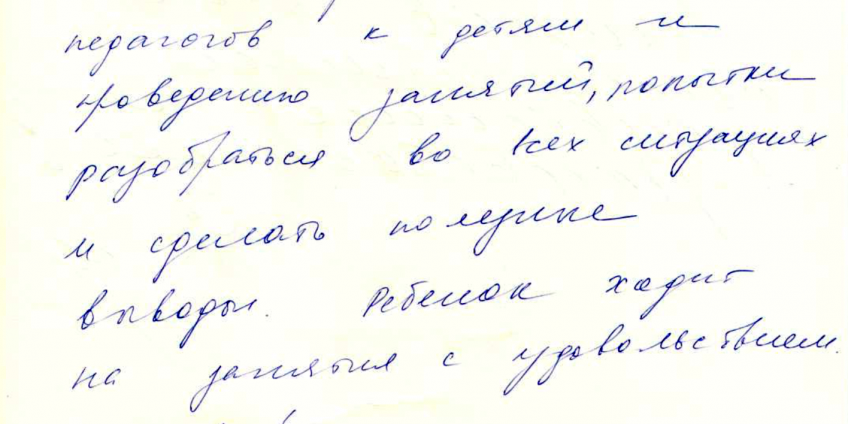 педагогов к детям и
проведению занятий, попытки
разобраться во всех ситуациях
и сделать полезные
выводы. Ребенок ходит
на занятия с удовольствием.